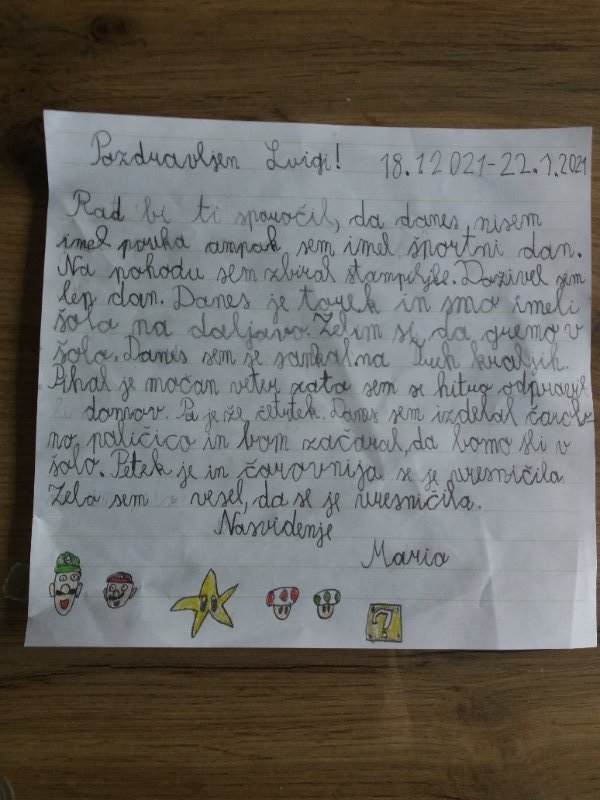 Pozdravljen Luigi! 18.12021-22.1.2021
Rad bi ti sporočil, da danes nisem
imel pouka ampak sem imel športni dan.
Na pohodu sem zbiral štampiljke. Doživel sem
lep dan. Danes je torek in smo imeli
šola na daljavo. Želim si, da gremo v
šolo. Danes sem se sankal na kraljih.
Pihal je močan veter zato sem se hitro odpravil
domov. Pa je že četrtek. Danes sem izdelal čarob
no paličico in bom začaral, da bomo šli v
šolo. Petek je in čarovnija se je uresničila.
Zelo sem vesel, da se je uresničila.
Nasvidenje
Mario
?